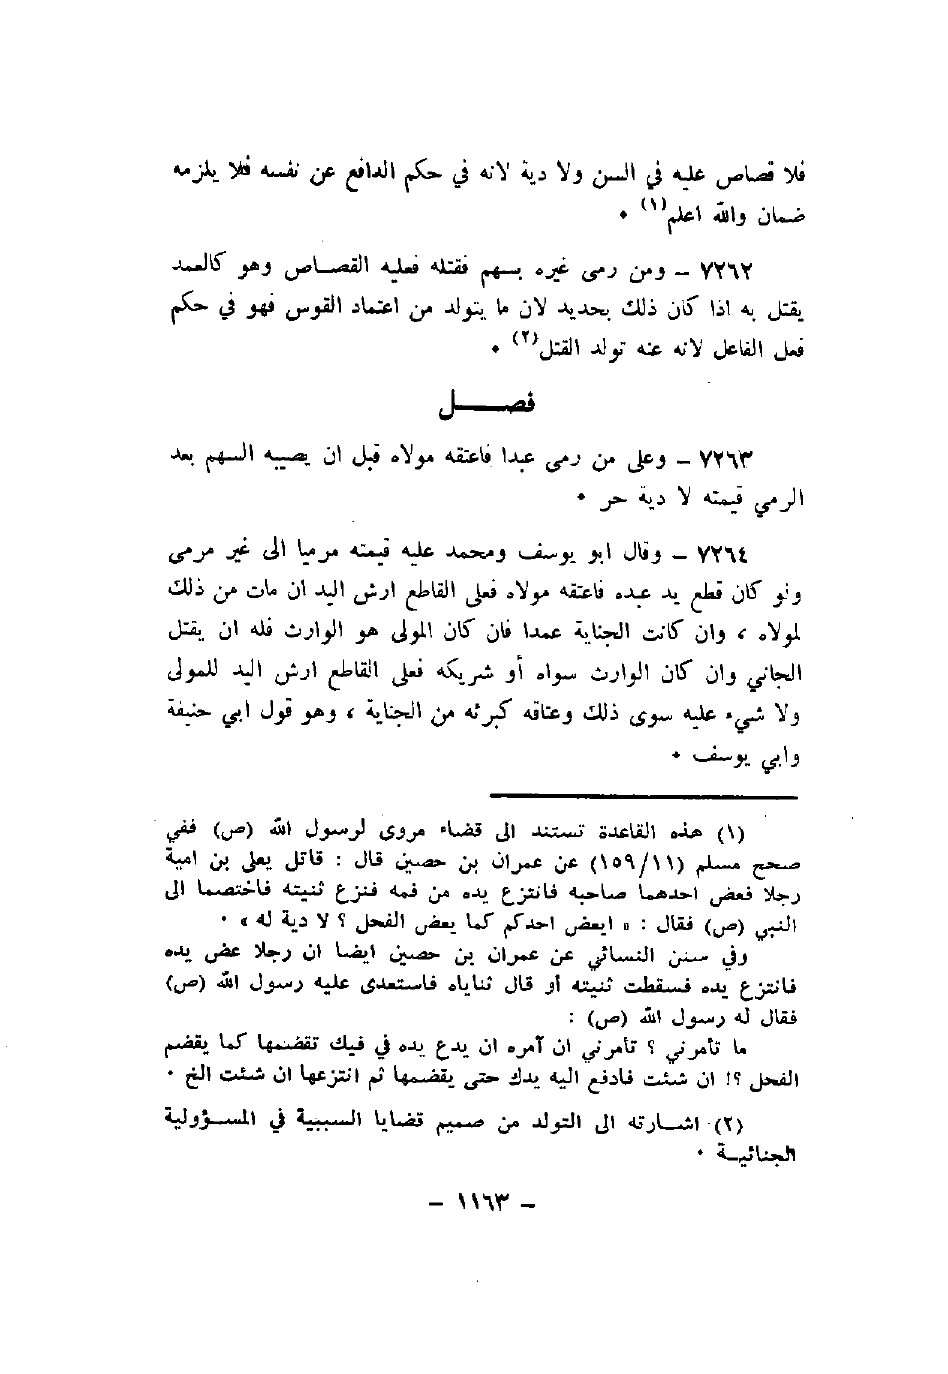 فلا قصاص عليه في السن ولا دية لانه في حكم الدافع عن نفسه فلا يلزمه
ضمان والله اعلم(١) •
٧٢٦٢ – ومن رمى غيره بسهم فقتله فعليه القصاص وهو كالعمد
يقتل به اذا كان ذلك بحديد لان ما يتولد من اعتماد القوس فهو في حكم
فعل الفاعل لانه عنه تولد القتل(٢) •
فصـــــل
٧٢٦٣ – وعلى من رمى عبدا فاعتقه مولاه قبل ان يصيبه السهم بعد
الرمي قيمته لا دية حر •
٧٢٦٤ – وقال ابو يوسف ومحمد عليه قيمته مرميا الى غير مرمى
ونو كان قطع يد عبده فاعتقه مولاه فعلى القاطع ارش اليد ان مات من ذلك
لمولاه ، وان كانت الجناية عمدا فان كان المولى هو الوارث فله ان يقتل
الجاني وان كان الوارث سواه أو شريكه فعلى القاطع ارش اليد للمولى
ولا شيء عليه سوى ذلك وعتاقه كبرئه من الجناية ، وهو قول ابي حنيفة
وابي يوسف •
(١) هذه القاعدة تستند الى قضاء مروى لرسول الله (ص) ففي
صحح مسلم (١٥٩/١١) عن عمران بن حصين قال : قاتل يعلى بن امية
رجلا فعض احدهما صاحبه فانتزع يده من فمه فنزع ثنيته فاختصما الى
النبي (ص) فقال : « ايعض احدكم كما يعض الفحل ؟ لا دية له » •
وفي سنن النسائي عن عمران بن حصين ايضا ان رجلا عض يده
فانتزع يده فسقطت ثنيته أو قال ثناياه فاستعدى عليه رسول الله (ص)
فقال له رسول الله (ص) :
ما تأمرني ؟ تأمرني ان آمره ان يدع يده في فيك تقضمها كما يقضم
الفحل ؟! ان شئت فادفع اليه يدك حتى يقضمها ثم انتزعها ان شئت الخ •
(٢) اشـارته الى التولد من صميم قضايا السببية في المسـؤولية
الجنائيـة •
– ١١٦٣ –